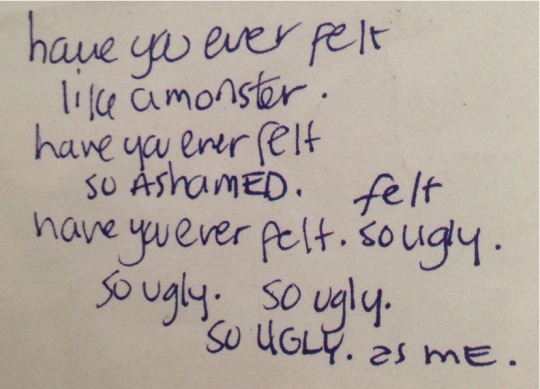 have you ever felt
like a monster.
have you ever felt
so AShamED. felt
have you ever felt. so ugly.
so ugly. so ugly.
SO UGLY. as mE.